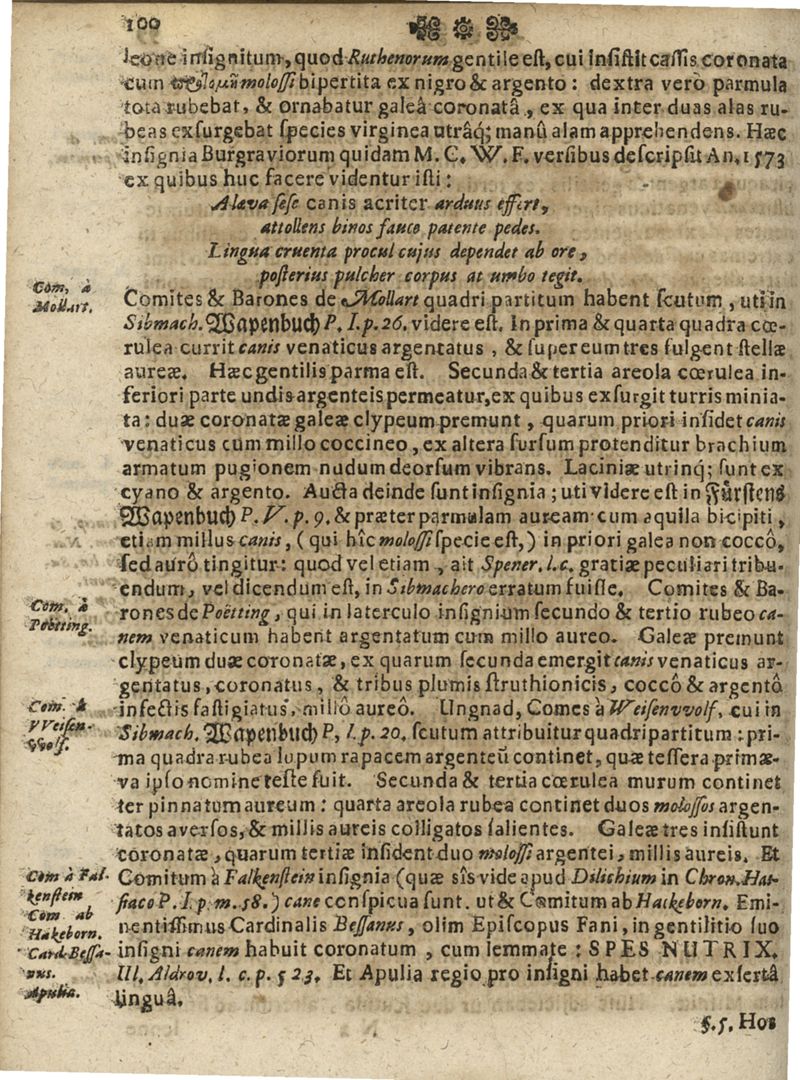 100
leone insignitum, quod Ruthenorum gentile est, cui insistit cassis coronata
cum molossi bipertita ex nigro & argento : dextra verò parmula
tota rubebat, & ornabatur galeâ coronatâ, ex qua inter duas alas ru-
beas exsurgebat species virginea utrâq; manû alam apprehendens. Hæc
insignia Burgraviorum quidam M. C. W. F. versibus descripsit An. 1573
ex quibus huc facere videntur isti :
Alava sese canis acriter arduus effert,
attollens binos fauce patente pedes.
Lingua cruenta procul cujus dependet ab ore,
posterius pulcher corpus at umbo tegit.
Com. à
Mollart.
Comites & Barones de Mollart quadri partitum habent scutum, uti in
Sibmach. Wapenbuch P. I. p. 26. videre est. In prima & quarta quadra cœ-
rulea currit canis venaticus argentatus, & super eum tres fulgent stellæ
aureæ. Hæc gentilis parma est. Secunda & tertia areola cœrulea in-
feriori parte undis argenteis permeatur, ex quibus exsurgit turris minia-
ta : duæ coronatæ galeæ clypeum premunt, quarum priori insidet canis
venaticus cum millo coccineo, ex altera sursum protenditur brachium
armatum pugionem nudum deorsum vibrans. Laciniæ utrinq; sunt ex
cyano & argento. Aucta deinde sunt insignia ; uti videre est in Fürstens
Wapenbuch P. V. p. 9. & præter parmulam auream cum aquila bicipiti,
etiam millus canis, ( qui hîc molossi specie est, ) in priori galea non coccô,
sed aurô tingitur : quod vel etiam, ait Spener. l. c. gratiæ peculiari tribu-
endum, vel dicendum est, in Sibmachero erratum fuisse. Comites & Ba-
Com. à
Poëtting.
rones de Poëtting, qui in laterculo insignium secundo & tertio rubeo ca-
nem venaticum habent argentatum cum millo aureo. Galeæ premunt
clypeum duæ coronatæ, ex quarum secunda emergit canis venaticus ar-
gentatus, coronatus, & tribus plumis struthionicis, coccô & argentô
Com. à
VVeisen-
VVolf.
infectis fastigiatus, millô aureô. Ungnad, Comes à Weisenvvolf, cui in
Sibmach. Wapenbuch P, I. p. 20. scutum attribuitur quadripartitum : pri-
ma quadra rubea lupum rapacem argenteũ continet, quæ tessera primæ-
va ipso nomine teste fuit. Secunda & tertia cœrulea murum continet
ter pinnatum aureum : quarta areola rubea continet duos molossos argen-
tatos aversos, & millis aureis colligatos salientes. Galeæ tres insistunt
coronatæ, quarum tertiæ insident duo molossi argentei, millis aureis. Et
Com à Fal-
kenstein
Comitum à Falkenstein insignia (quæ sîs vide apud Dilichium in Chron. Has-
siaco P. I. p. m. 58.) cane conspicua sunt. ut & Comitum ab Hackeborn. Emi-
Com ab
Hakeborn.
nentissimus Cardinalis Bessanus, olim Episcopus Fani, in gentilitio suo
Card. Bessa-
nus.
insigni canem habuit coronatum, cum lemmate : SPES NUTRIX.
Ul. Aldrov. l. c. p. 523. Et Apulia regio pro insigni habet canem exsertâ
Apulia.
linguâ.
§. 5. Hos